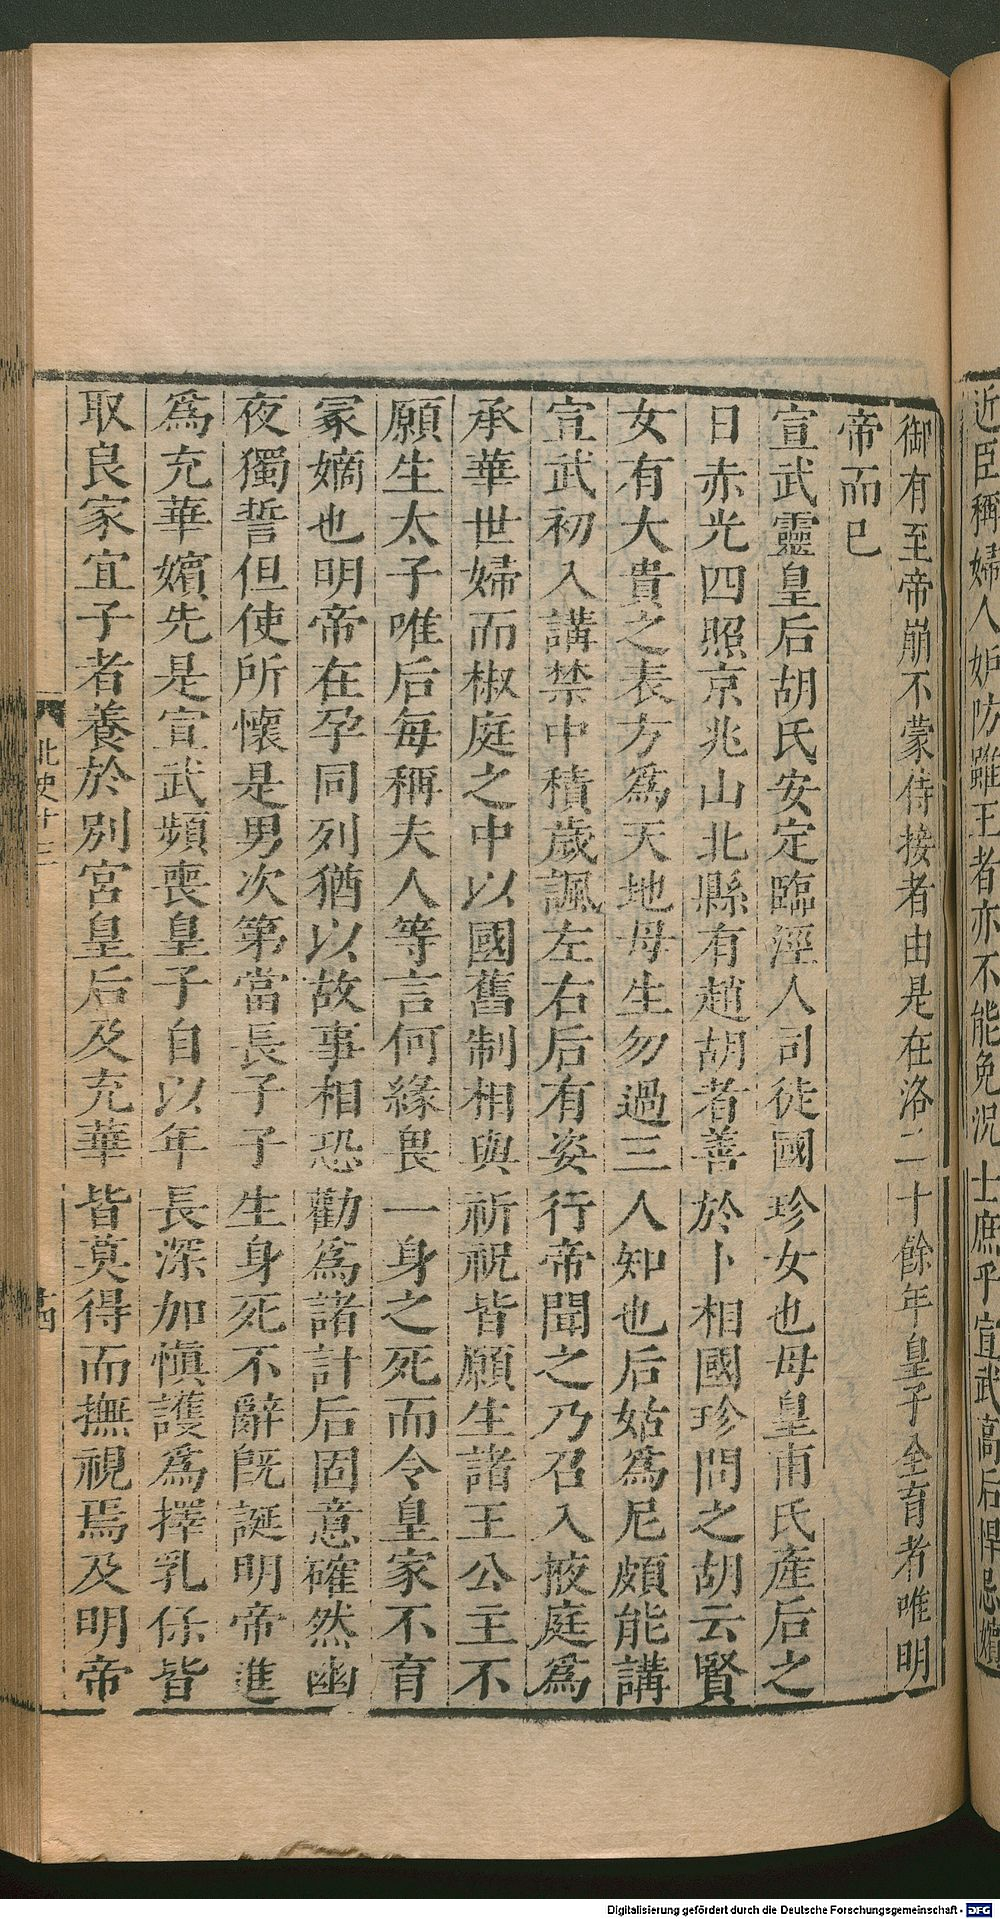 近臣稱婦人妒防雖王者亦不能免況士庶乎宣武高后悍忌嬪
御有至帝崩不蒙侍接者由是在洛二十餘年皇子全育者唯明
帝而已
宣武靈皇后胡氏安定臨涇人司徒國珍女也母皇甫氏產后之
日赤光四照京兆山北縣有趙胡者善於卜相國珍問之胡云賢
女有大貴之表方爲天地母生勿過三人知也后姑爲尼頗能講
宣武初入講禁中積歲諷左右后有姿行帝聞之乃召入掖庭爲
承華世婦而椒庭之中以國舊制相與祈祝皆願生諸王公主不
願生太子唯后每稱夫人等言何緣畏一身之死而令皇家不育
冢嫡也明帝在孕同列猶以故事相恐勸爲諸計后固意確然幽
夜獨誓但使所懷是男次第當長子子生身死不辭旣誕明帝進
爲充華嬪先是宣武頻喪皇子自以年長深加愼護爲擇乳保皆
取良家宜子者養於別宮皇后及充華皆莫得而撫視焉及明帝
北史十三
十四
Digitalisierung gefördert durch die Deutsche Forschungsgemeinschaft - DFG